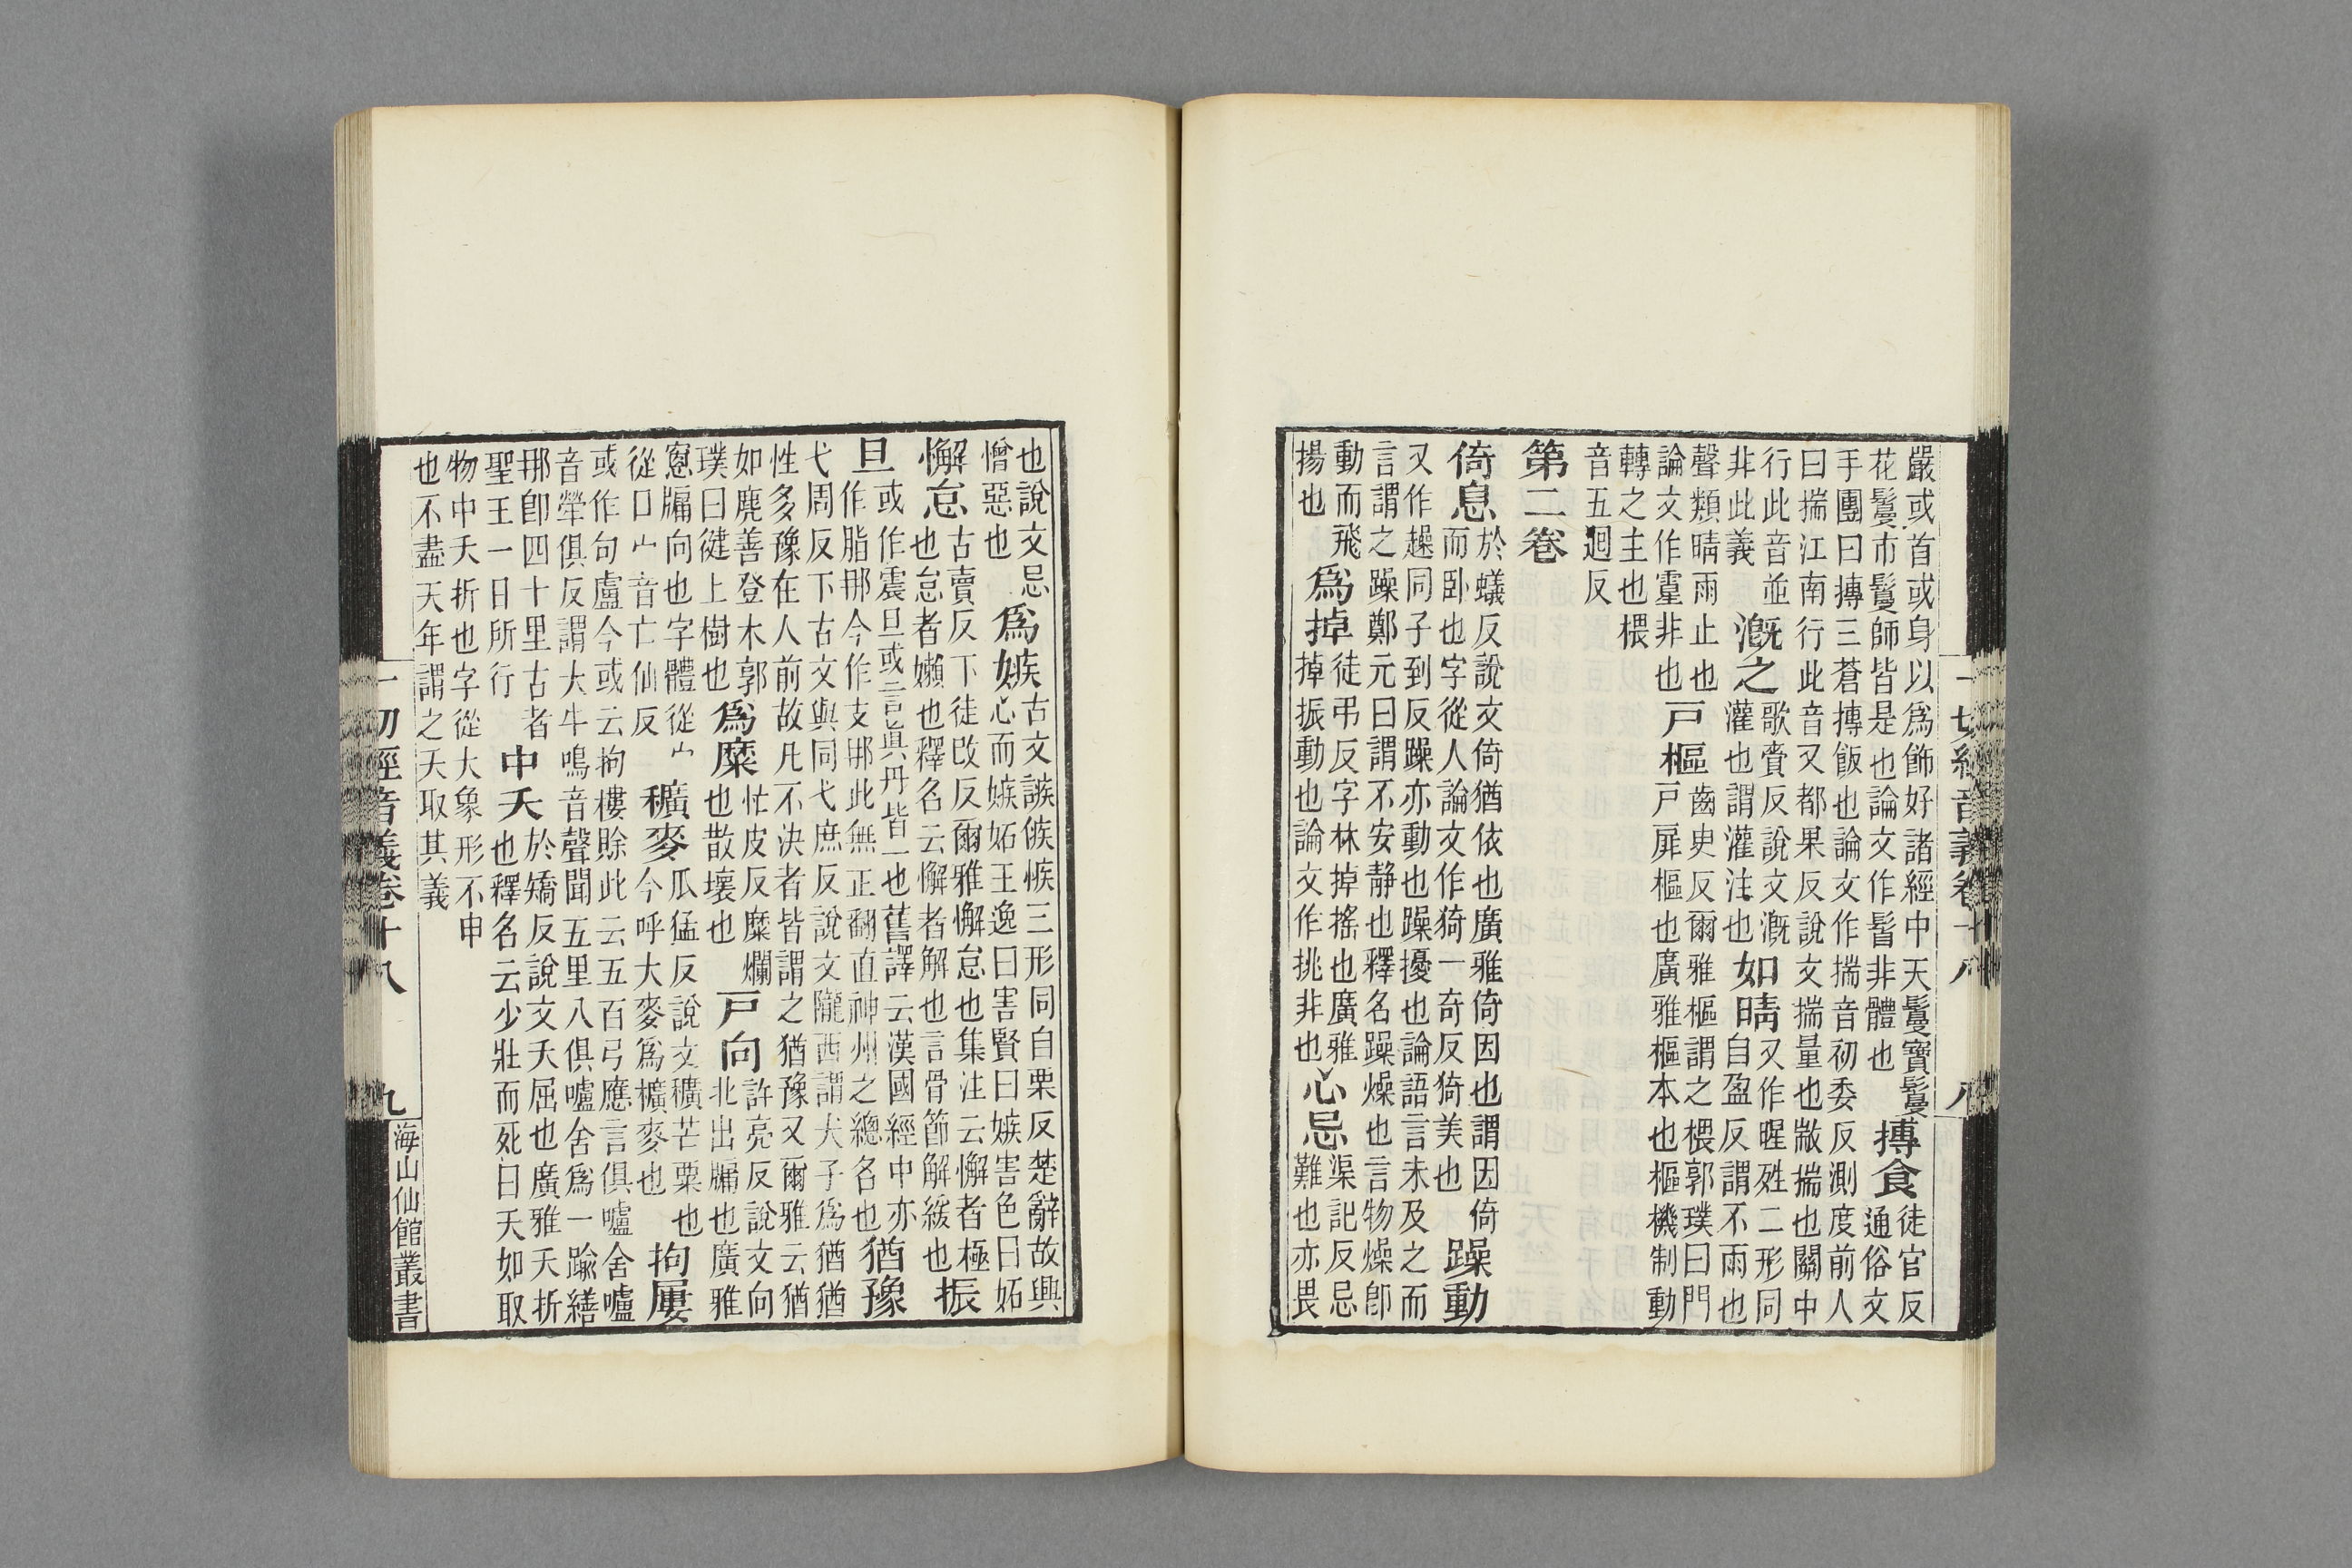 嚴或首或身以爲飾好諸經中天鬘寶鬘
花鬘市鬘師皆是也論文作鬠非體也
摶食
徒官反
通俗文
手團曰摶三蒼摶飯也論文作揣音初委反測度前人
曰揣江南行此音又都果反說文揣量也敠揣也關中
行此音並
非此義
漑之
歌賫反說文漑
灌也謂灌注也
如晴
又作暒殅二形同
自盈反謂不雨也
聲類晴雨止也
論文作䨟非也
戸樞
齒臾反爾雅樞謂之椳郭璞曰門
戸扉樞也廣雅樞本也樞機制動
轉之主也椳
音五迴反
第二卷
倚息
於蟻反說文倚猶依也廣雅倚因也謂因倚
而卧也字從人論文作猗一奇反猗美也
躁動
又作趮同子到反躁亦動也躁擾也論語言未及之而
言謂之躁鄭元曰謂不安静也釋名躁燥也言物燥卽
動而飛
揚也
爲掉
徒弔反字林掉搖也廣雅
掉振動也論文作挑非也
心忌
渠記反忌
難也亦畏
一切經音義卷十八
八
也說文忌
憎惡也
爲嫉
古文䛿㑵㥉三形同自栗反楚辭故興
心而嫉妬王逸曰害賢曰嫉害色曰妬
懈怠
古賣反下徒改反爾雅懈怠也集注云懈者極
也怠者嬾也釋名云懈者解也言骨節解緩也
振
旦
或作震旦或言眞丹皆一也舊譯云漢國經中亦
作脂那今作支那此無正翻直神州之總名也
猶豫
弋周反下古文與同弋庶反說文隴西謂犬子爲猶猶
性多豫在人前故凡不決者皆謂之猶豫又爾雅云猶
如麂善登木郭
璞曰健上樹也
爲糜
忙皮反糜爛
也散壞也
戸向
許亮反說文向
北出牖也廣雅
窻牖向也字體從宀
從口宀音亡仙反
穬麥
瓜猛反說文穬芒粟也
今呼大麥爲穬麥也
拘屢
或作句盧今或云拘樓賒此云五百弓應言俱嚧舍嚧
音犖俱反謂大牛鳴音聲聞五里八俱嚧舍爲一踰繕
那卽四十里古者
聖王一日所行
中夭
於矯反說文夭屈也廣雅夭折
也釋名云少壯而死曰夭如取
物中夭折也字從大象形不申
也不盡天年謂之夭取其義
一切經音義卷十八
九
海山仙館叢書